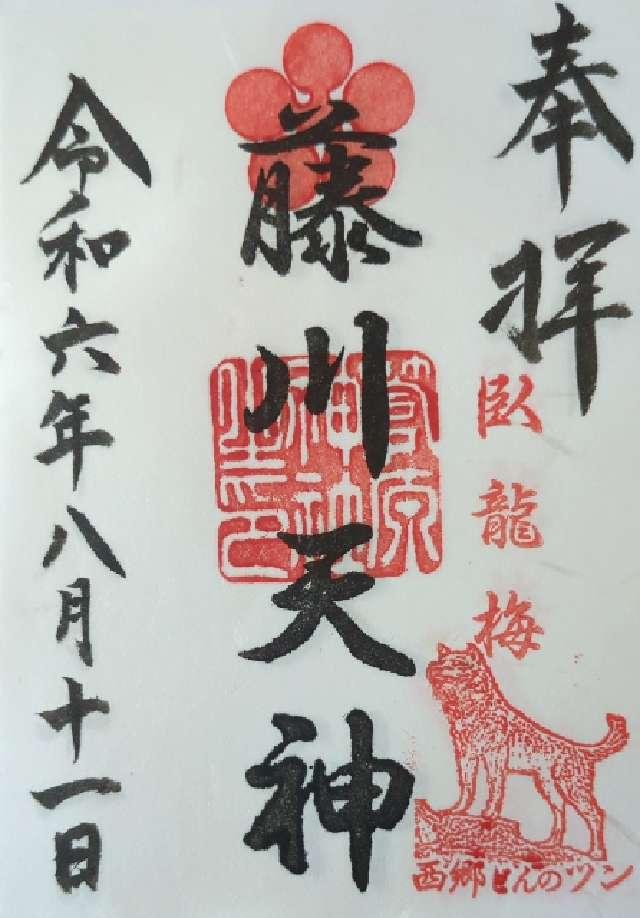 奉拝
臥龍梅
西郷どんのツン
藤川天神
菅原神社之印
令和六年八月十一日